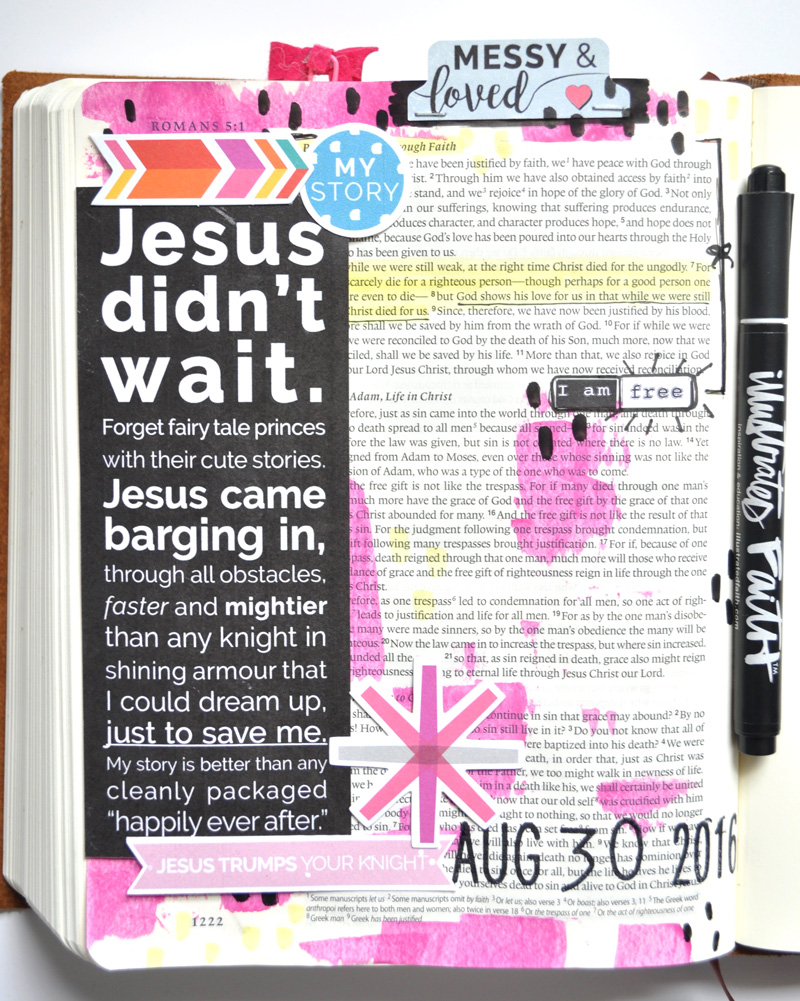 MESSY &
loved
ROMANS 5:1
MY
STORY
Jesus
didn't
wait.
Forget fairy tale princes
with their cute stories.
Jesus came
barging in,
through all obstacles,
faster and mightier
than any knight in
shining armour that
I could dream up,
just to save me.
My story is better than any
cleanly packaged
“happily ever after.”
JESUS TRUMPS YOUR KNIGHT
1222
ough Faith
have been justified by faith, we¹ have peace with God through
rist. ²Through him we have also obtained access by faith² into
stand, and we³ rejoice⁴ in hope of the glory of God. ³Not only
in our sufferings, knowing that suffering produces endurance,
oduces character, and character produces hope, ⁵and hope does not
hame, because God's love has been poured into our hearts through the Holy
o has been given to us.
while we were still weak, at the right time Christ died for the ungodly. ⁷For
scarcely die for a righteous person—though perhaps for a good person one
are even to die— ⁸but God shows his love for us in that while we were still
Christ died for us. ⁹Since, therefore, we have now been justified by his blood,
ore shall we be saved by him from the wrath of God. ¹⁰For if while we were
we were reconciled to God by the death of his Son, much more, now that we
ciled, shall we be saved by his life. ¹¹More than that, we also rejoice in God
our Lord Jesus Christ, through whom we have now received reconciliation.
I am free
Adam, Life in Christ
efore, just as sin came into the world through one man, and death through
o death spread to all men⁵ because all sinned— ¹³for sin indeed was in the
fore the law was given, but sin is not counted where there is no law. ¹⁴Yet
gned from Adam to Moses, even over those whose sinning was not like the
sion of Adam, who was a type of the one who was to come.
the free gift is not like the trespass. For if many died through one man's
much more have the grace of God and the free gift by the grace of that one
s Christ abounded for many. ¹⁶And the free gift is not like the result of that
sin. For the judgment following one trespass brought condemnation, but
ift following many trespasses brought justification. ¹⁷For if, because of one
pass, death reigned through that one man, much more will those who receive
dance of grace and the free gift of righteousness reign in life through the one
s Christ.
efore, as one trespass⁶ led to condemnation for all men, so one act of righ-
⁷ leads to justification and life for all men. ¹⁹For as by the one man's disobe-
many were made sinners, so by the one man's obedience the many will be
hteous. ²⁰Now the law came in to increase the trespass, but where sin increased,
unded all the ²¹so that, as sin reigned in death, grace also might reign
righteousness ng to eternal life through Jesus Christ our Lord.
continue in sin that grace may abound? ²By no
s! How to sin still live in it? ³Do you not know that all of
ere baptized into his death? ⁴We were
eath, in order that, just as Christ was
the Father, we too might walk in newness of life.
him in a death like his, we shall certainly be united
now that our old self was crucified with
ought to nothing, so that we would no longer
d to sin. ⁷For
AUG 30 2016
¹Some manuscripts let us ²Some manuscripts omit by faith ³Or let us; also verse 3 ⁴Or boast; also verses 3, 11 ⁵The Greek word
anthropoi refers here to both men and women; also twice in verse 18 ⁶Or the trespass of one ⁷Or the act of righteousness of one
⁸Greek man ⁹Greek has been justified
illustrated Faith™
inspiration & education: illustratedfaith.com